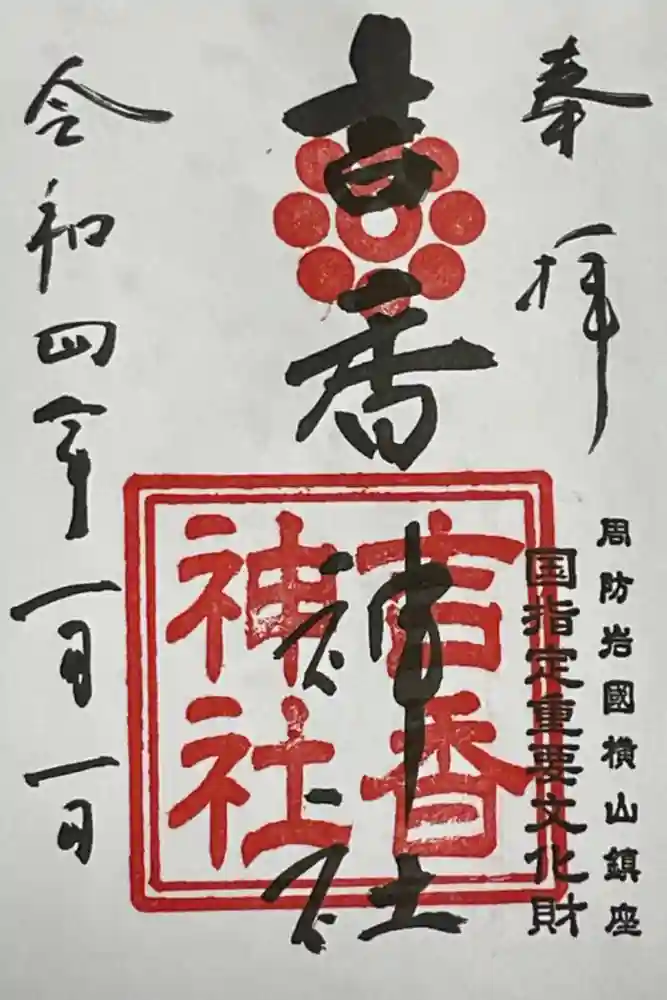 奉拝
周防岩國横山鎮座
国指定重要文化財
吉香神社
吉香
神社
令和四年一月一日